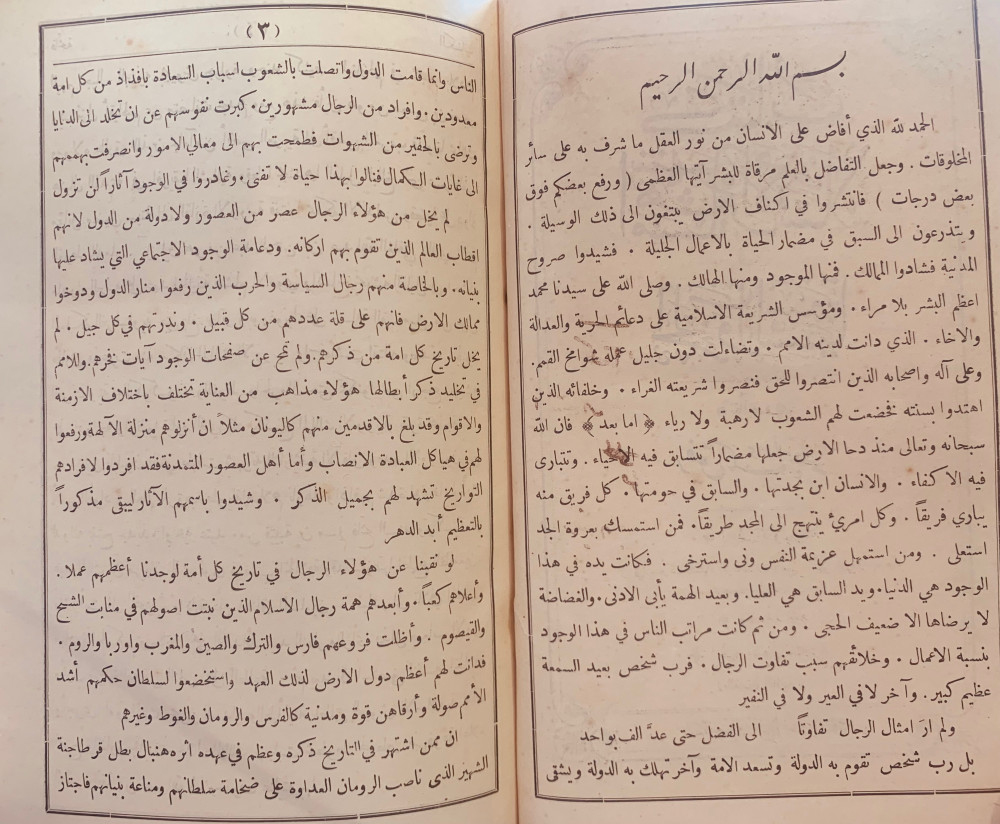 بسم الله الرحمن الرحيم
الحمد لله الذي أفاض على الانسان من نور العقل ما شرف به على سائر
المخلوقات . وجعل التفاضل بالعلم مرقاة للبشر آيتها العظمى ( ورفع بعضكم فوق
بعض درجات ) فانتشروا في أكناف الارض يبتغون الى ذلك الوسيلة .
ويتذرعون الى السبق في مضمار الحياة بالاعمال الجليلة . فشيدوا صروح
المدنية فشادوا الممالك . فمنها الموجود ومنها الهالك . وصلى الله على سيدنا محمد
اعظم البشر بلا مراء . ومؤسس الشريعة الاسلامية على دعائم الحرية والعدالة
والاخاء . الذي دانت لدينه الامم . وتضاءلت دون جليل عمله شوامخ القمم .
وعلى آله واصحابه الذين انتصروا للحق فنصروا شريعته الغراء . وخلفائه الذين
اهتدوا بسنته فخضعت لهم الشعوب لارهبة ولا رياء ﴿ اما بعد ﴾ فان الله
سبحانه وتعالى منذ دحا الارض جعلها مضماراً تتسابق فيه الاحياء . وتتبارى
فيه الاكفاء . والانسان ابن بجدتها . والسابق في حومتها . كل فريق منه
يباري فريقاً . وكل امرئ ينتهج الى المجد طريقاً . فمن استمسك بعروة الجد
استعلى . ومن استمهل عزيمة النفس ونى واسترخى . فكانت يده في هذا
الوجود هي الدنيا . ويد السابق هي العليا . وبعيد الهمة يأبى الادنى . والغضاضة
لا يرضاها الا ضعيف الحجى . ومن ثم كانت مراتب الناس في هذا الوجود
بنسبة الاعمال . وخلائقهم سبب تفاوت الرجال . فرب شخص بعيد السمعة
عظيم كبير . وآخر لا في العير ولا في النفير
ولم ارَ امثال الرجال تفاوتاً الى الفضل حتى عدَّ الف بواحد
بل رب شخص تقوم به الدولة وتسعد الامة وآخر تهلك به الدولة ويشقى
( ٣ )
الناس وانما قامت الدول واتصلت بالشعوب اسباب السعادة بافذاذ من كل امة
معدودين . وافراد من الرجال مشهورين . كبرت نفوسهم عن ان تخلد الى الدنايا
وترضى بالحقير من الشهوات فطمحت بهم الى معالي الامور وانصرفت بهممهم
الى غايات الكمال فنالوا بهذا حياة لا تفنى . وغادروا في الوجود آثاراً لن تزول
لم يخل من هؤلاء الرجال عصر من العصور ولا دولة من الدول لانهم
اقطاب العالم الذين تقوم بهم اركانه . ودعامة الوجود الاجتماعي التي يشاد عليها
بنيانه . وبالخاصة منهم رجال السياسة والحرب الذين رفعوا منار الدول ودوخوا
ممالك الارض فانهم على قلة عددهم من كل قبيل . وندرتهم في كل جيل . لم
يخل تاريخ كل امة من ذكرهم . ولم تمح عن صفحات الوجود آيات فخرهم . وللامم
في تخليد ذكر أبطالها هؤلاء مذاهب من العناية تختلف باختلاف الازمنة
والاقوام وقد بلغ بالاقدمين منهم كاليونان مثلاً ان أنزلوهم منزلة الآلهة ورفعوا
لهم في هياكل العبادة الانصاب وأما أهل العصور المتمدنة فقد افردوا لافرادهم
التواريخ تشهد لهم بجميل الذكر . وشيدوا باسمهم الآثار ليبقى مذكوراً
بالتعظيم أبد الدهر
لو نقبنا عن هؤلاء الرجال في تاريخ كل أمة لوجدنا أعظمهم عملا .
وأعلاهم كعباً . وأبعدهم همة رجال الاسلام الذين نبتت اصولهم في منابت الشيح
والقيصوم . وأظلت فروعهم فارس والترك والصين والمغرب واوربا والروم .
فدانت لهم أعظم دول الارض لذلك العهد واستخضعوا لسلطان حكمهم أشد
الأمم صولة وأرقاهن قوة ومدنية كالفرس والرومان والغوط وغيرهم
ان ممن اشتهر في التاريخ ذكره وعظم في عهده اثره هنبال بطل قرطاجنة
الشهير الذي ناصب الرومان العداوة على ضخامة سلطانهم ومناعة بنيانهم فاجتاز